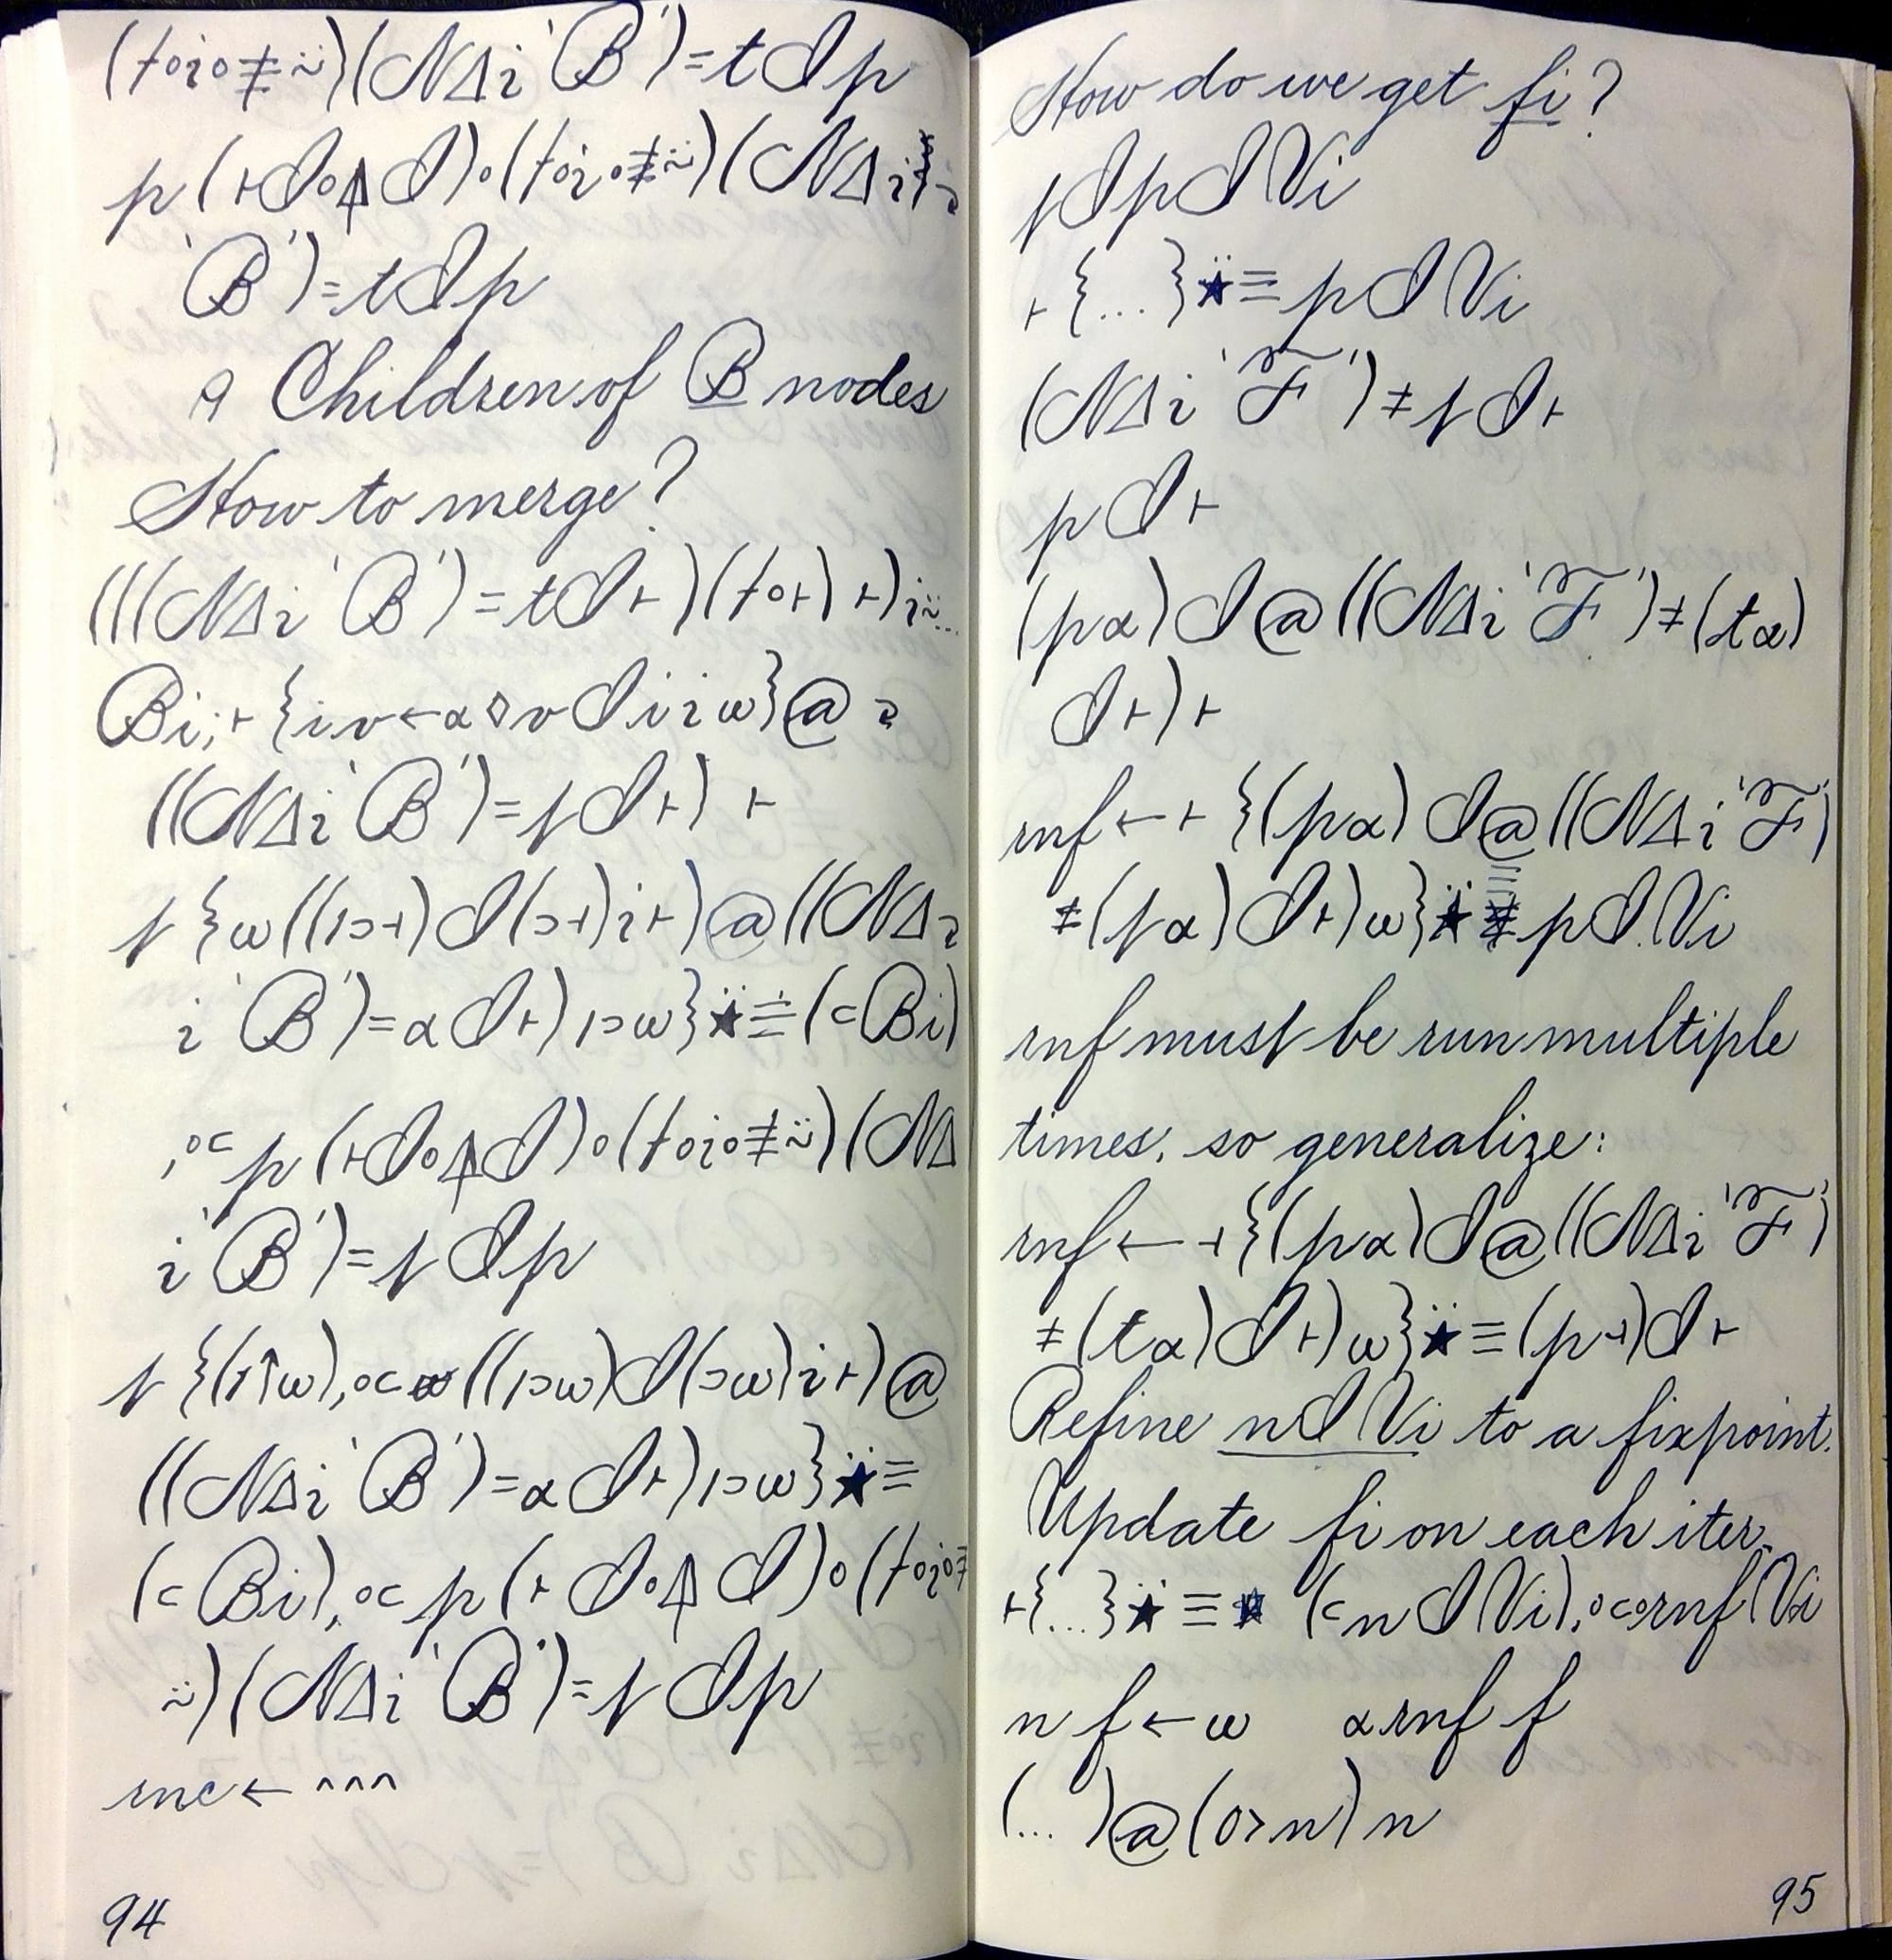 (⊢∘⍳∘≢⍨)(N∆⍳'B')=t⌷p
p(⊢⌷∘⍋⌷)∘(⊢∘⍳∘≢⍨)(N∆⍳
'B')=t⌷p
⍝ Children of B nodes
How to merge?
(((N∆⍳'B')=t⌷⊢)(⊢∘⊢)⊢)⍳⍨…
Bi;⊢{i v←α⋄v⌷i⍳ω}@
((N∆⍳'B')=t⌷⊢)⊢
t{ω((⊃⊣)⌷(⊃⊣)⍳⊢)@((N∆
⍳'B')=α⌷⊢)⊃ω}⍣≡(⊂Bi)
,∘⊂p(⊢⌷∘⍋⌷)∘(⊢∘⍳∘≢⍨)(N∆
⍳'B')=t⌷p
t{(1↑ω),∘⊂((⊃ω)⌷(⊃ω)⍳⊢)@
((N∆⍳'B')=α⌷⊢)⊃ω}⍣≡
(⊂Bi),∘⊂p(⊢⌷∘⍋⌷)∘(⊢∘⍳∘≢
⍨)(N∆⍳'B')=t⌷p
rnc← ^^^
94
How do we get fi?
t⌷p⌷Vi
⊢{...}⍣≡p⌷Vi
(N∆⍳'F')≠t⌷⊢
p⌷⊢
(pα)⌷@((N∆⍳'F')≠(tα)
⌷⊢)⊢
rnf←⊢{(pα)⌷@((N∆⍳'F')
≠(tα)⌷⊢)ω}⍣≡p⌷Vi
rnf must be run multiple
times, so generalize:
rnf←⊣{(pα)⌷@((N∆⍳'F')
≠(tα)⌷⊢)ω}⍣≡(p⊣)⌷⊢
Refine n⌷Vi to a fixpoint.
Update fi on each iter.
⊢{...}⍣≡(⊂n⌷Vi),∘⊂∘rnf Vi
n f←ω α rnf f
(...)@(0>n)n
95